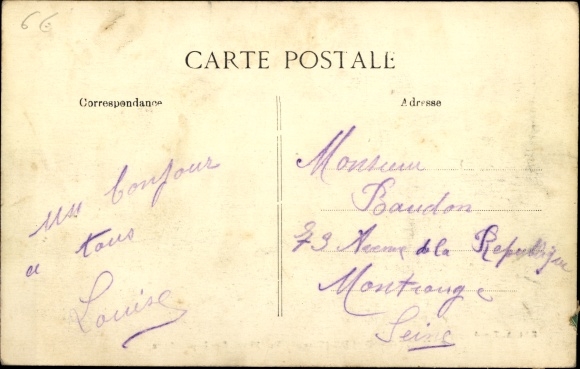 66
CARTE POSTALE
Correspondance
Adresse
bonjour
a tous
Louise
Monsieur
Baudon
73 Avenue de la Republique
Montrouge
Seine